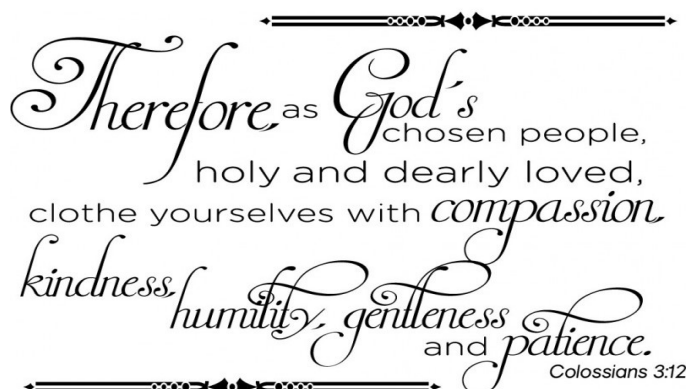 Therefore, as God's
chosen people,
holy and dearly loved,
clothe yourselves with compassion,
kindness,
humility, gentleness
and patience.
Colossians 3:12